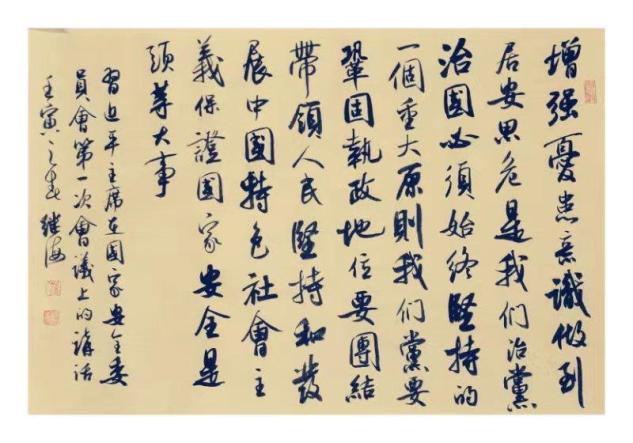 增强憂患意識做到
居安思危是我们治黨
治國必須始终堅持的
一個重大原則我们黨要
鞏固執政地位要團結
帶領人民堅持和發
展中國特色社會主
義保證國家安全是
頭等大事
習近平主席在國家安全委
員會第一次會議上的講話
壬寅之春继海